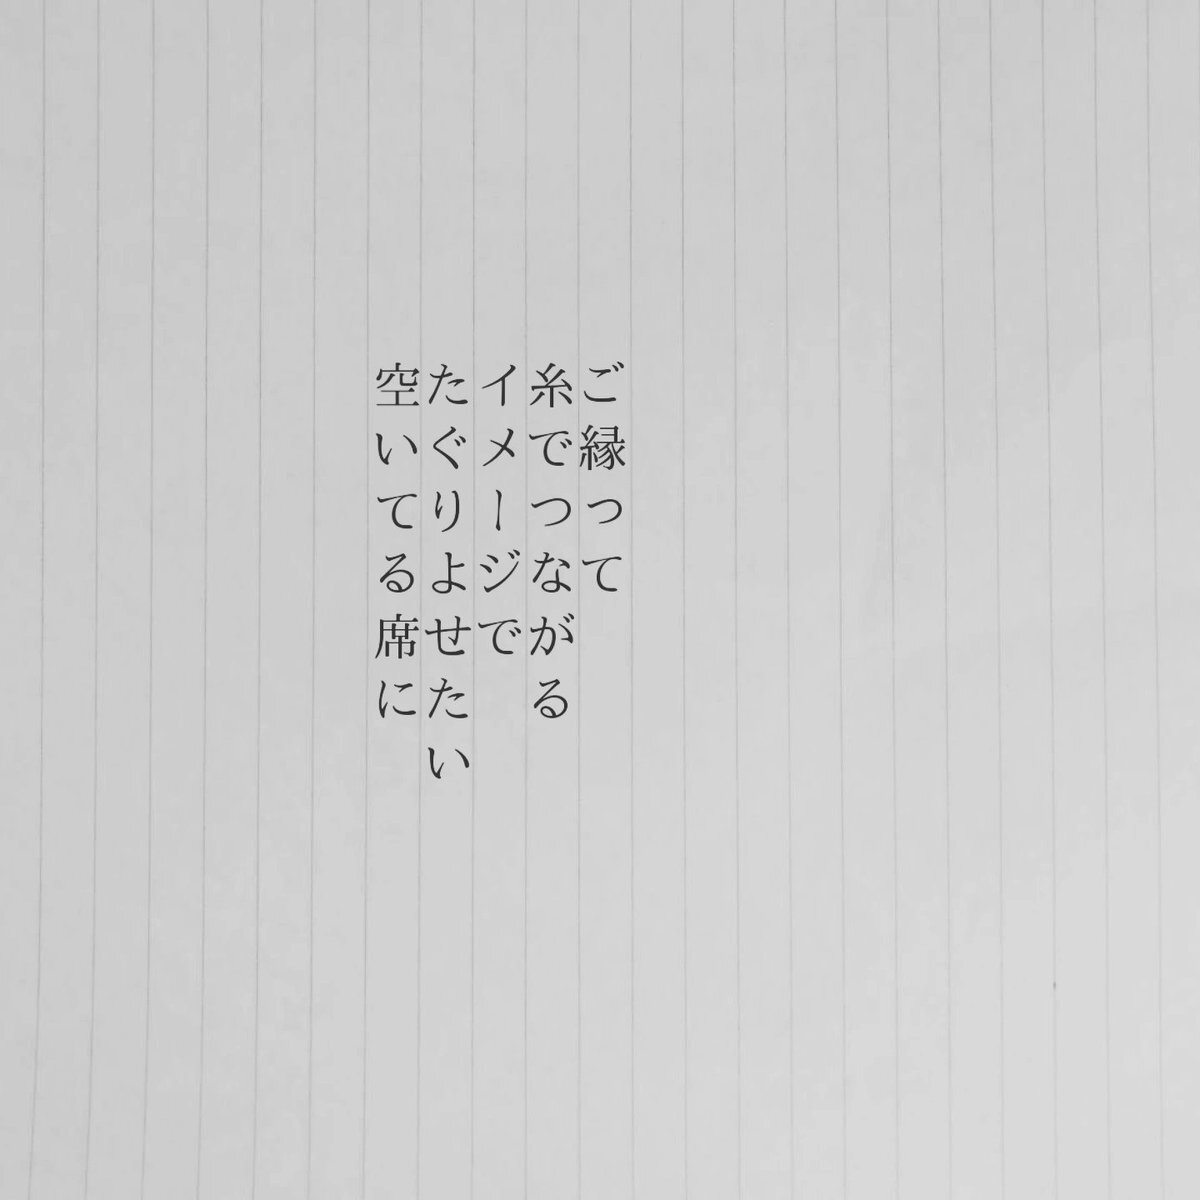 ご縁って
糸でつながる
イメージで
たぐりよせたい
空いてる席に